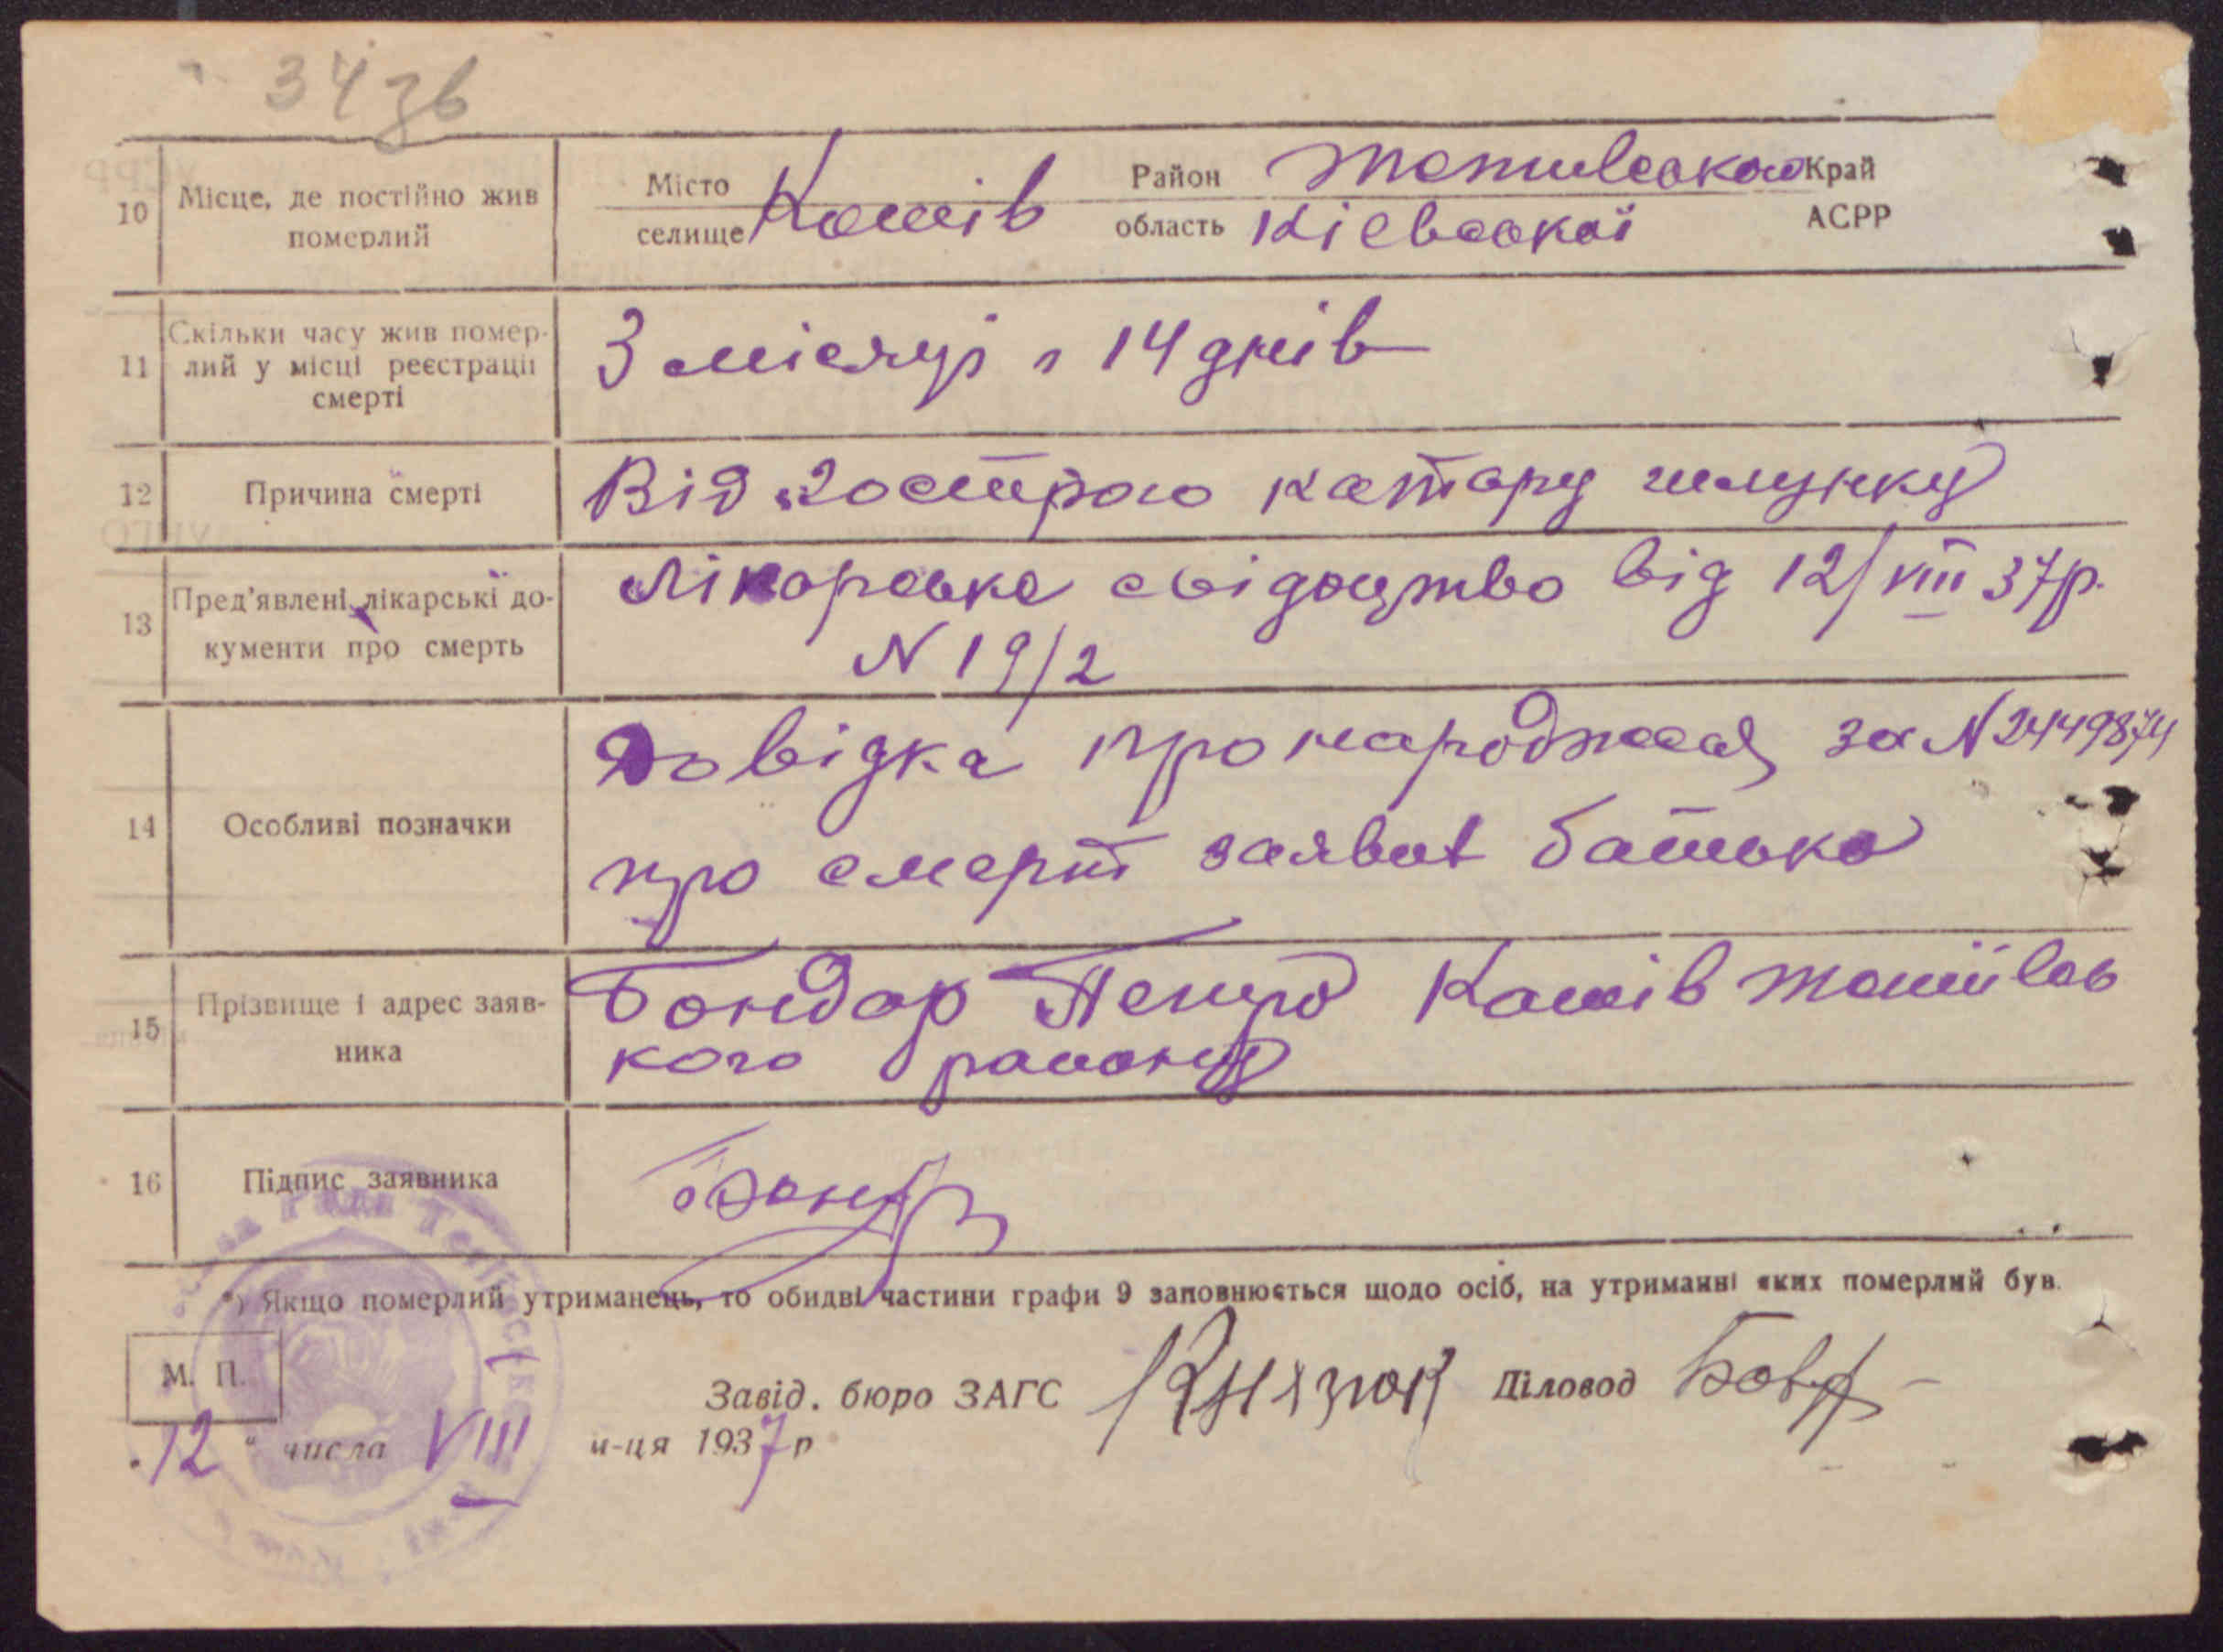 34 зв
10 Місце, де постійно жив померлий
Місто селище Кошів Район Тетиївського Край
область Кієвської АСРР
11 Скільки часу жив помер-
лий у місці реєстрації
смерті
3 місяці 14 днів
12 Причина смерті
Від гострого катару шлунку
13 Пред'явлені лікарські до-
кументи про смерть
Лікарське свідоцтво від 12/VIII 37р.
N 19/2
14 Особливі позначки
Довідка про народження за N
про смерт заявив батько
15 Прізвище і адрес заяв-
ника
Бондар Петро Кошів Тетиївсь
кого району
16 Підпис заявника
*) Якщо померлий утриманець, то обидві частини графи 9 заповнюється щодо осіб, на утриманні яких померлий був.
М. П.
Завід. бюро ЗАГС Князюк Діловод
„12 " числа VIII м-ця 1937 р